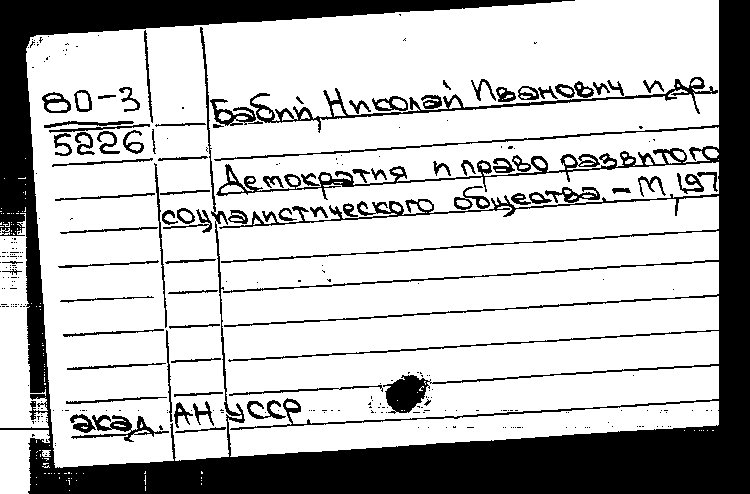 80-3
5226
Бабий, Николай Иванович и др.
Демократия и право развитого
социалистического общества. - М, 197
акад. АН УССР.